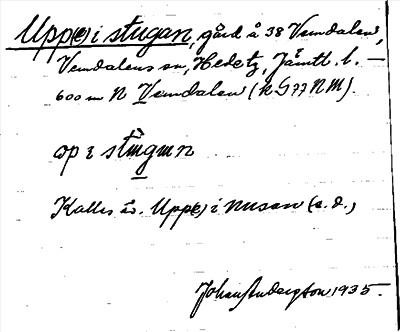 Upp(e) i stugan, gård å 38 Vemdalen,
Vemdalens sn, Hede tg, Jämtl. l. —
600 m N Vemdalen (k G77 NM).
op i stuɡuɯn
Kallas äv. Upp(e) i nusan (s. d.)
Johan Anderson 1935.